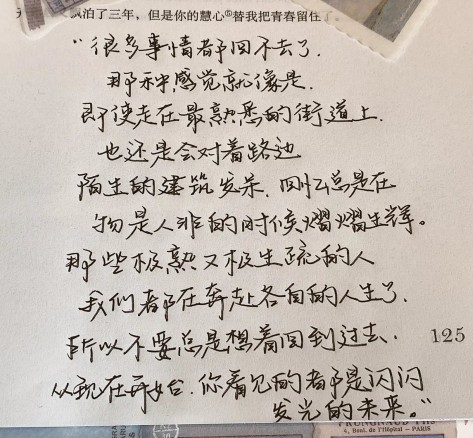 飘泊了三年，但是你的慧心⑮替我把青春留住了。
“很多事情都回不去了.
那种感觉就像是.
即使走在最熟悉的街道上.
也还是会对着路边
陌生的建筑发呆.回忆总是在
物是人非的时候熠熠生辉。
那些极熟又极生疏的人
我们都在奔赴各自的人生了.
所以不要总是想着回到过去.
125
从现在开始.你看见的都是闪闪
发光的未来。”
PRUNGNAUD
4, Boul. de l'Hôpital — PARIS